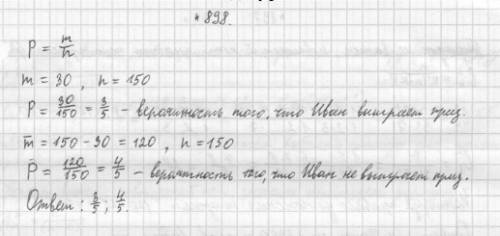 № 898.
P = m/n
m = 30, n = 150
P = 30/150 = 3/5 - вероятность того, что Иван выиграет приз.
m̅ = 150 - 30 = 120, n = 150
P̅ = 120/150 = 4/5 - вероятность того, что Иван не выиграет приз.
Ответ: 3/5; 4/5.